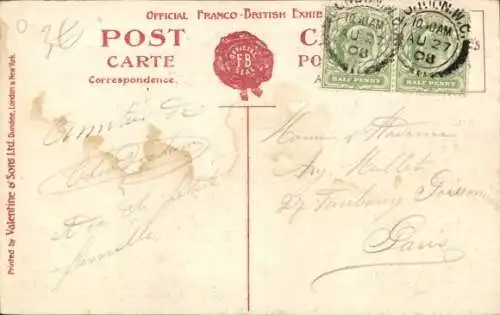 Official Franco-British Exhib
POST
CARTE
Correspondence.
OFFICIAL
F.B
SEAL
CA
PO
A
LONDON. W.C
10.30AM
AU 27
08
HALF PENNY
HALF PENNY
Printed by Valentine & Sons Ltd. Dundee, London & New York.
Amitiés de
et de la petite
famille
Monsieur et Madame
27 Faubourg Poissonnière
Paris